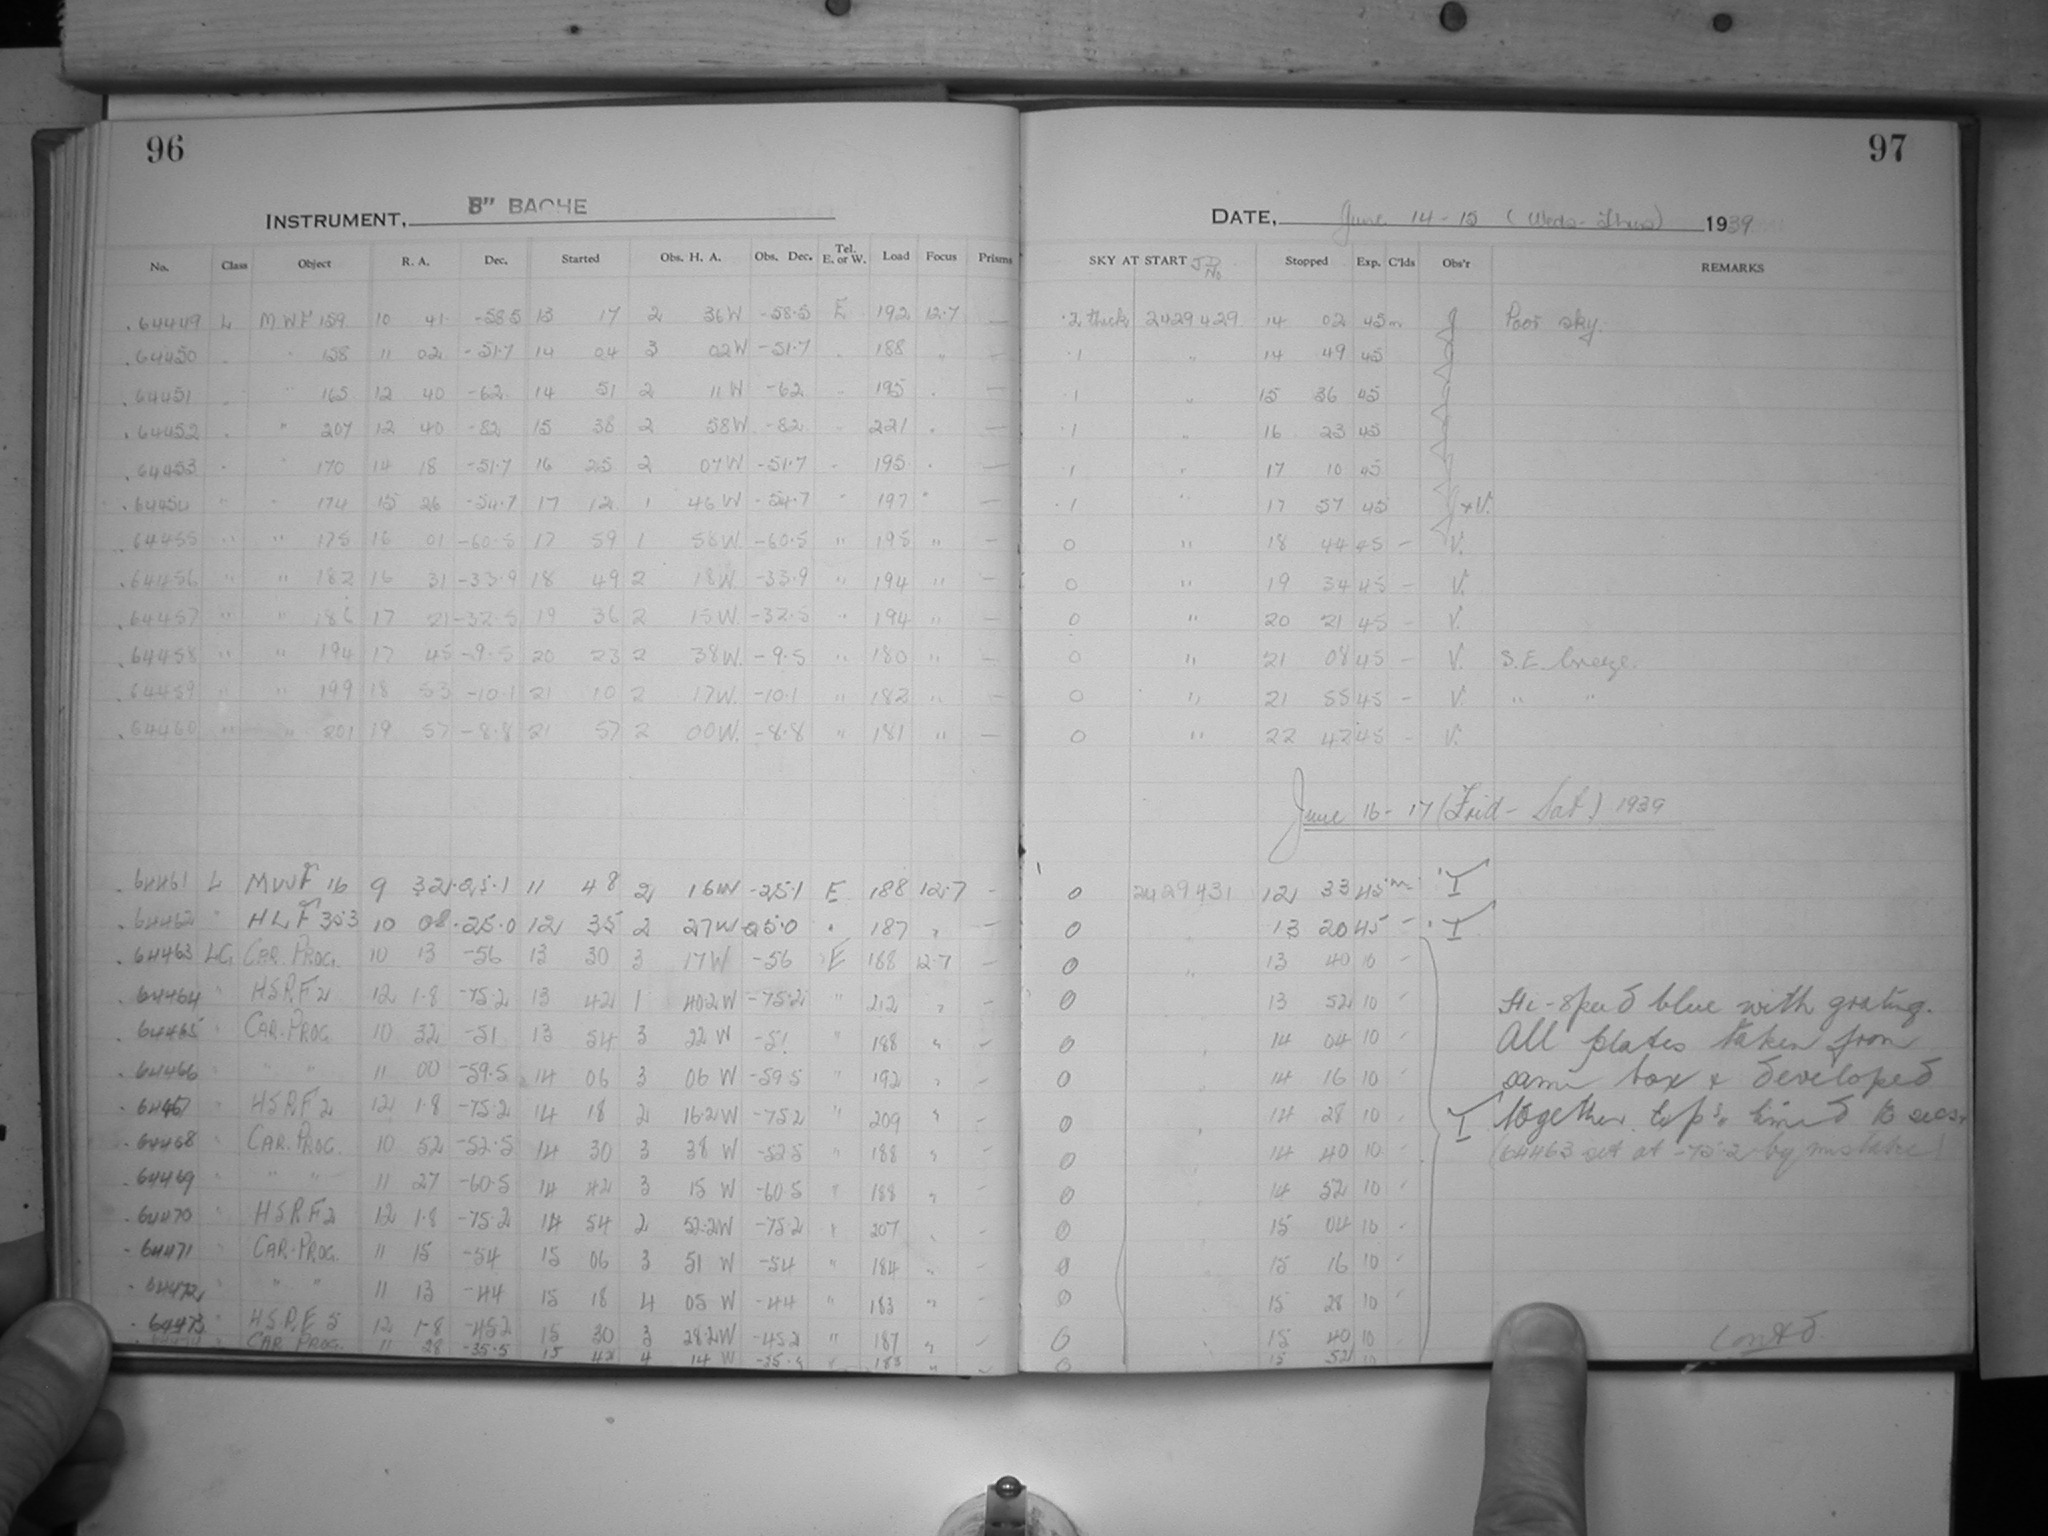 96
97
INSTRUMENT, 8" BACHE
DATE, June 14-15 (Weds-Thurs) 1939
No. Class Object R. A. Dec. Started Obs. H. A. Obs. Dec. Tel. E. or W. Load Focus Prisms SKY AT START J.D. No Stopped Exp. C'lds Obs'r REMARKS
64449 L MWF 159 10 41 -58.5 13 17 2 36W -58.5 E 192 12.7 — .2 thick 2429429 14 02 45m Poor sky.
64450 " " 158 11 02 -51.7 14 04 3 02W -51.7 " 188 " — .1 " 14 49 45
64451 " " 165 12 40 -62 14 51 2 11W -62 " 195 " — .1 " 15 36 45
64452 " " 207 12 40 -82 15 38 2 58W -82 " 221 " — .1 " 16 23 45
64453 " " 170 14 18 -51.7 16 25 2 07W -51.7 " 195 " — .1 " 17 10 45
64454 " " 174 15 26 -54.7 17 12 1 46W -54.7 " 197 " — .1 " 17 57 45 +V.
64455 " " 175 16 01 -60.5 17 59 1 58W -60.5 " 195 " — 0 " 18 44 45 — V.
64456 " " 182 16 31 -33.9 18 49 2 18W -33.9 " 194 " — 0 " 19 34 45 — V.
64457 " " 186 17 21 -32.5 19 36 2 15W -32.5 " 194 " — 0 " 20 21 45 — V.
64458 " " 194 17 45 -9.5 20 23 2 38W -9.5 " 180 " — 0 " 21 08 45 — V. S.E. breeze.
64459 " " 199 18 53 -10.1 21 10 2 17W -10.1 " 182 " — 0 " 21 55 45 — V. " "
64460 " " 201 19 57 -8.8 21 57 2 00W -8.8 " 181 " — 0 " 22 42 45 — V.
June 16-17 (Frid-Sat) 1939
64461 L MWF 16 9 32 -25.1 11 48 2 16W -25.1 E 188 12.7 — 0 2429431 12 33 45m T
64462 " HLF 353 10 08 -25.0 12 35 2 27W -25.0 " 187 " — 0 " 13 20 45 — T
64463 LG CAR. PROG. 10 13 -56 13 30 3 17W -56 E 188 12.7 — 0 " 13 40 10 —
64464 " HSPF2 12 1.8 -75.2 13 42 1 40.2W -75.2 " 212 " — 0 13 52 10 " Hi-speed blue with grating.
64465 " CAR. PROG 10 32 -51 13 54 3 22W -51 " 188 " — 0 " 14 04 10 " All plates taken from
64466 " " " 11 00 -59.5 14 06 3 06W -59.5 " 192 " — 0 14 16 10 " same box & developed
64467 " HSPF2 12 1.8 -75.2 14 18 2 16.2W -75.2 " 209 " — 0 " 14 28 10 " T together.
64468 " CAR. PROG. 10 52 -52.5 14 30 3 38W -52.5 " 188 " — 0 14 40 10 " (64463 set at -75.2 by mistake)
64469 " " " 11 27 -60.5 14 42 3 15W -60.5 " 188 " — 0 14 52 10 "
64470 " HSPF2 12 1.8 -75.2 14 54 2 52.2W -75.2 " 207 " — 0 15 04 10 "
64471 " CAR. PROG. 11 15 -54 15 06 3 51W -54 " 184 " — 0 " 15 16 10 "
64472 " " " 11 13 -44 15 18 4 05W -44 " 183 " — 0 15 28 10 "
64473 " HSPF5 12 1.8 -45.2 15 30 3 28.2W -45.2 " 187 " — 0 15 40 10
CAR. PROG. 11 28 -35.5 15 42 4 14W -35.5 " 183 " — 0 15 52 10
Contd.